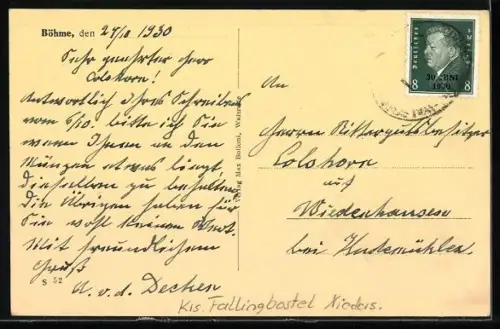 Böhme, den 24/10 1930
Sehr geehrter Herr
Colshorn!
Antwortlich Ihres Schreibens
vom 6/10. bitte ich Sie
wenn Ihnen an den
Münzen etwas liegt,
dieselben zu behalten.
Die Übrigen haben für
Sie wohl keinen Wert.
Mit freundlichem
Gruß
A. v. d. Decken
S 52
Verlag Max Bolloni,
Deutsches Reich
8 8
30. JUNI
1930
An
Herrn Rittergutsbesitzer
Colshorn
auf
Wiedenhausen
bei Hudemühlen.
Krs. Fallingbostel Nieders.